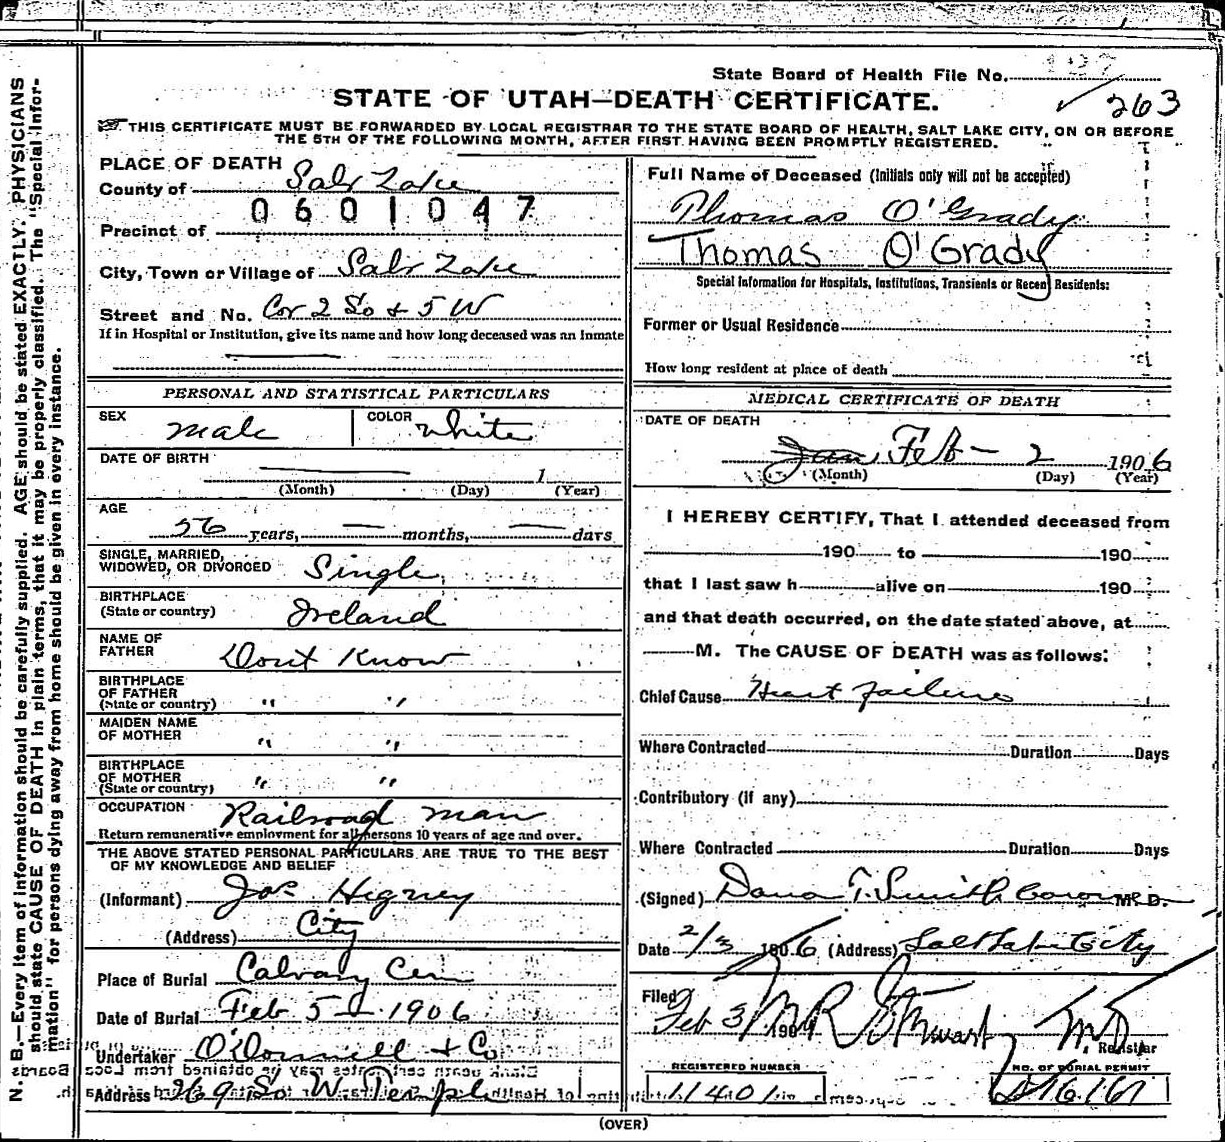 State Board of Health File No. 127
263
STATE OF UTAH—DEATH CERTIFICATE.
THIS CERTIFICATE MUST BE FORWARDED BY LOCAL REGISTRAR TO THE STATE BOARD OF HEALTH, SALT LAKE CITY, ON OR BEFORE
THE 5TH OF THE FOLLOWING MONTH, AFTER FIRST HAVING BEEN PROMPTLY REGISTERED.
N. B.—Every item of information should be carefully supplied. AGE should be stated EXACTLY. PHYSICIANS
should state CAUSE OF DEATH in plain terms, that it may be properly classified. The "Special Infor-
mation" for persons dying away from home should be given in every instance.
PLACE OF DEATH
County of Salt Lake
0601047
Precinct of
City, Town or Village of Salt Lake
Street and No. Cor 2 So & 5 W
If in Hospital or Institution, give its name and how long deceased was an Inmate
PERSONAL AND STATISTICAL PARTICULARS
SEX male COLOR white
DATE OF BIRTH 1
(Month) (Day) (Year)
AGE
56 years, months, days
SINGLE, MARRIED,
WIDOWED, OR DIVORCED Single
BIRTHPLACE
(State or country) Ireland
NAME OF
FATHER Dont Know
BIRTHPLACE
OF FATHER
(State or country) " "
MAIDEN NAME
OF MOTHER " "
BIRTHPLACE
OF MOTHER
(State or country) " "
OCCUPATION Railroad man
Return remunerative employment for all persons 10 years of age and over.
THE ABOVE STATED PERSONAL PARTICULARS ARE TRUE TO THE BEST
OF MY KNOWLEDGE AND BELIEF
(Informant) Jos Higney
(Address) City
Place of Burial Calvary Cem
Date of Burial Feb 5 1906
Undertaker O'Donnell & Co
Address So W Temple
Full Name of Deceased (Initials only will not be accepted)
Thomas O'Grady
Thomas O'Grady
Special Information for Hospitals, Institutions, Transients or Recent Residents:
Former or Usual Residence
How long resident at place of death
MEDICAL CERTIFICATE OF DEATH
DATE OF DEATH
Jan Feb – 2 1906
(Month) (Day) (Year)
I HEREBY CERTIFY, That I attended deceased from
190 to 190
that I last saw h alive on 190
and that death occurred, on the date stated above, at
M. The CAUSE OF DEATH was as follows:
Chief Cause Heart failure
Where Contracted Duration Days
Contributory (if any)
Where Contracted Duration Days
(Signed) Dana T. Smith Coroner M. D.
Date 2/3 1906 (Address) Salt Lake City
Filed Feb 3 190 M R Stewart MD
Registrar
REGISTERED NUMBER
11401
NO. OF BURIAL PERMIT
(OVER)